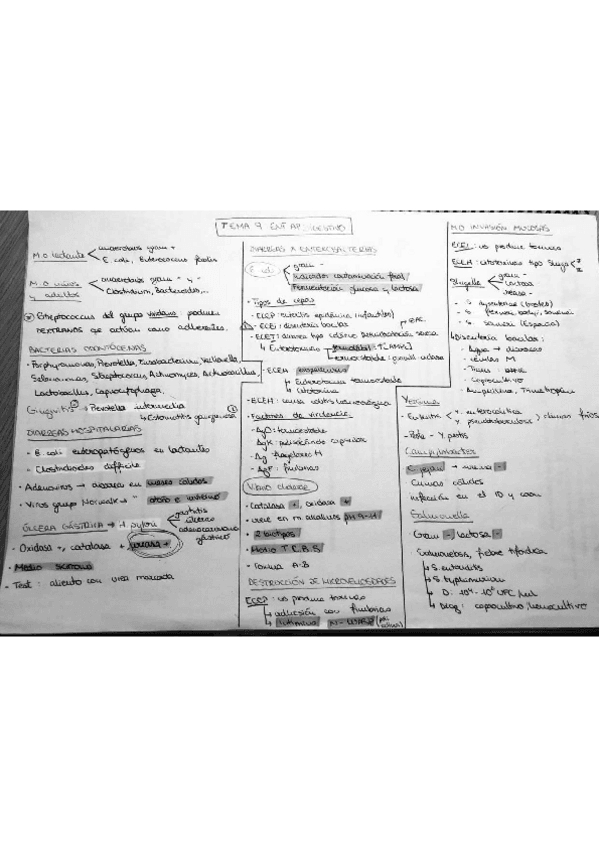 TEMA 9 INF AP. DIGESTIVO
M.O lactante
anaerobios gram +
E. coli, Enterococcus faecalis
M.O niños y adultos
anaerobios gram - y -
Clostridium, Bacteroides,...
Streptococcus del grupo viridans producen
dextranos que actúan como adherentes.
BACTERIAS ODONTÓGENAS
Porphyromonas, Prevotella, Fusobacterium, Veillonella,
Selenomonas, Streptococcus, Actinomyces, Actinobacillus
Lactobacillus, Capnocytophaga.
Gingivitis → Prevotella intermedia
↳ Estomatitis gangrenosa
DIARREAS HOSPITALARIAS
- E. coli enteropatógenos en lactantes
- Clostridioides difficile
- Adenovirus → diarrea en meses cálidos
- Virus grupo Norwalk → " otoño e invierno
ÚLCERA GÁSTRICA → H. pylori
gastritis
úlcera
adenocarcinoma gástrico
- Oxidasa +, catalasa +, ureasa +
- Medio Skirrow
- Test: aliento con urea marcada
DIARREAS X ENTEROBACTERIAS
E. coli
gram -
Indicador contaminación fecal
Fermentación glucosa y lactosa
- Tipos de cepas:
- ECEP: colitis epidémica (infantiles)
- ECEI: disentería bacilar
- ECET: diarrea tipo colérico
↳ Enterotoxinas
termolábil: ↑[AMPc]
termoestable: guanil ciclasa
- ECEA
Enterotoxina termoestable
citotoxina
- ECEH: causa colitis hemorrágica
- Factores de virulencia:
- AgO: termoestable
- AgK: polisacárido capsular
- Ag flagelares H
- AgF: fimbrias
Vibrio cholerae
- Catalasa +, oxidasa +
- crece en m alcalinos pH 9-11
- 2 biotipos
- Medio T.C.B.S.
- Forma A-B
DESTRUCCIÓN DE MICROVELLOSIDADES
ECEP: no produce toxinas
↳ adhesión con fimbrias
↳ Intimina
M.O INVASIÓN MUCOSAS
ECEI: no produce toxinas
ECEH: citotoxinas tipo Shiga I II
Shigella
gram -
lactosa -
ureasa -
- S. dysenteriae (brotes)
- S. flexneri, boydii, sonnei
- S. sonnei (España)
↳ Disentería bacilar:
- Agua → diarreas
- células M
- Coprocultivo
- Ampicilina, Trimetoprim
Yersinia
- Enteritis
Y. enterocolitica
Y. pseudotuberculosis
climas fríos
- Peste - Y. pestis
Campylobacter
C. jejuni → ureasa -
Climas cálidos
infección en el ID y colon
Salmonella
Gram - lactosa -
- Salmonelosis, fiebre tifoidea
↳ S. enteritidis
↳ S. typhimurium
↳ Diag: coprocultivo/hemocultivo